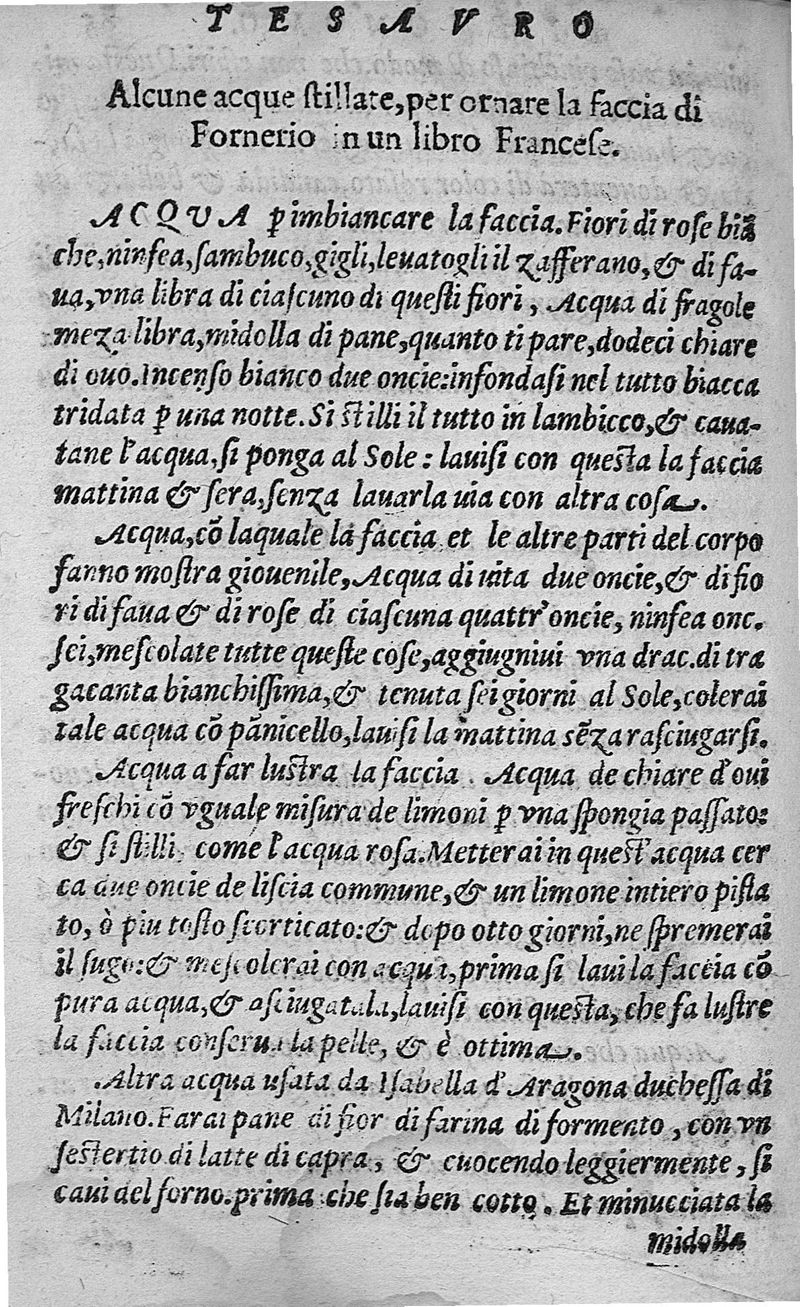 T E S A V R O
Alcune acque ſtillate, per ornare la faccia di
Fornerio in un libro Franceſe.
ACQVA ꝑ imbiancare la faccia. Fiori di roſe biā
che, ninfea, ſambuco, gigli, leuatogli il zafferano, & di fa-
ua, vna libra di ciaſcuno di queſti fiori, Acqua di fragole
meza libra, midolla di pane, quanto ti pare, dodeci chiare
di ouo. Incenſo bianco due oncie: infondaſi nel tutto biacca
tridata ꝑ una notte. Si ſtilli il tutto in lambicco, & caua-
tane l'acqua, ſi ponga al Sole: lauiſi con queſta la faccia
mattina & ſera, ſenza lauarla uia con altra coſa.
Acqua, cō laquale la faccia et le altre parti del corpo
fanno moſtra giouenile, Acqua di uita due oncie, & di fio
ri di faua & di roſe di ciaſcuna quattr'oncie, ninfea onc.
ſei, meſcolate tutte queſte coſe, aggiugniui vna drac. di tra
gacanta bianchiſſima, & tenuta ſei giorni al Sole, colerai
tale acqua cō pānicello, lauiſi la mattina sēza raſciugarſi.
Acqua a far luſtra la faccia. Acqua de chiare d'oui
freſchi cō vguale miſura de limoni ꝑ vna ſpongia paſſato:
& ſi ſtilli, come l'acqua roſa. Metterai in queſt'acqua cer
ca due oncie de liſcia commune, & un limone intiero piſta
to, ò piu toſto ſcorticato: & dopo otto giorni, ne ſpremerai
il ſugo: & meſcolerai con acqua, prima ſi laui la faccia cō
pura acqua, & aſciugatala, lauiſi con queſta, che fa luſtre
la faccia conſerua la pelle, & è ottima.
Altra acqua uſata da Iſabella d'Aragona ducheſſa di
Milano. Farai pane di fior di farina di formento, con vn
ſeſtertio di latte di capra, & cuocendo leggiermente, ſi
caui del forno. prima che ſia ben cotto. Et minucciata la
midolla